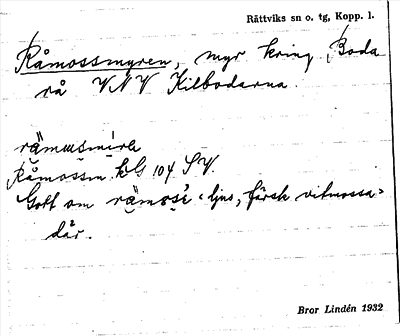 Rättviks sn o. tg, Kopp. l.
Råmossmyren, myr kring Boda
rå VNV Kilbodarna.
Råmossen kG 104 SV.
Gott om ljus, färsk vitmossa
där.
Bror Lindén 1932